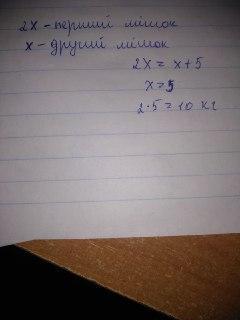 2x - перший мішок
x - другий мішок
2x = x + 5
x = 5
2·5 = 10 кг